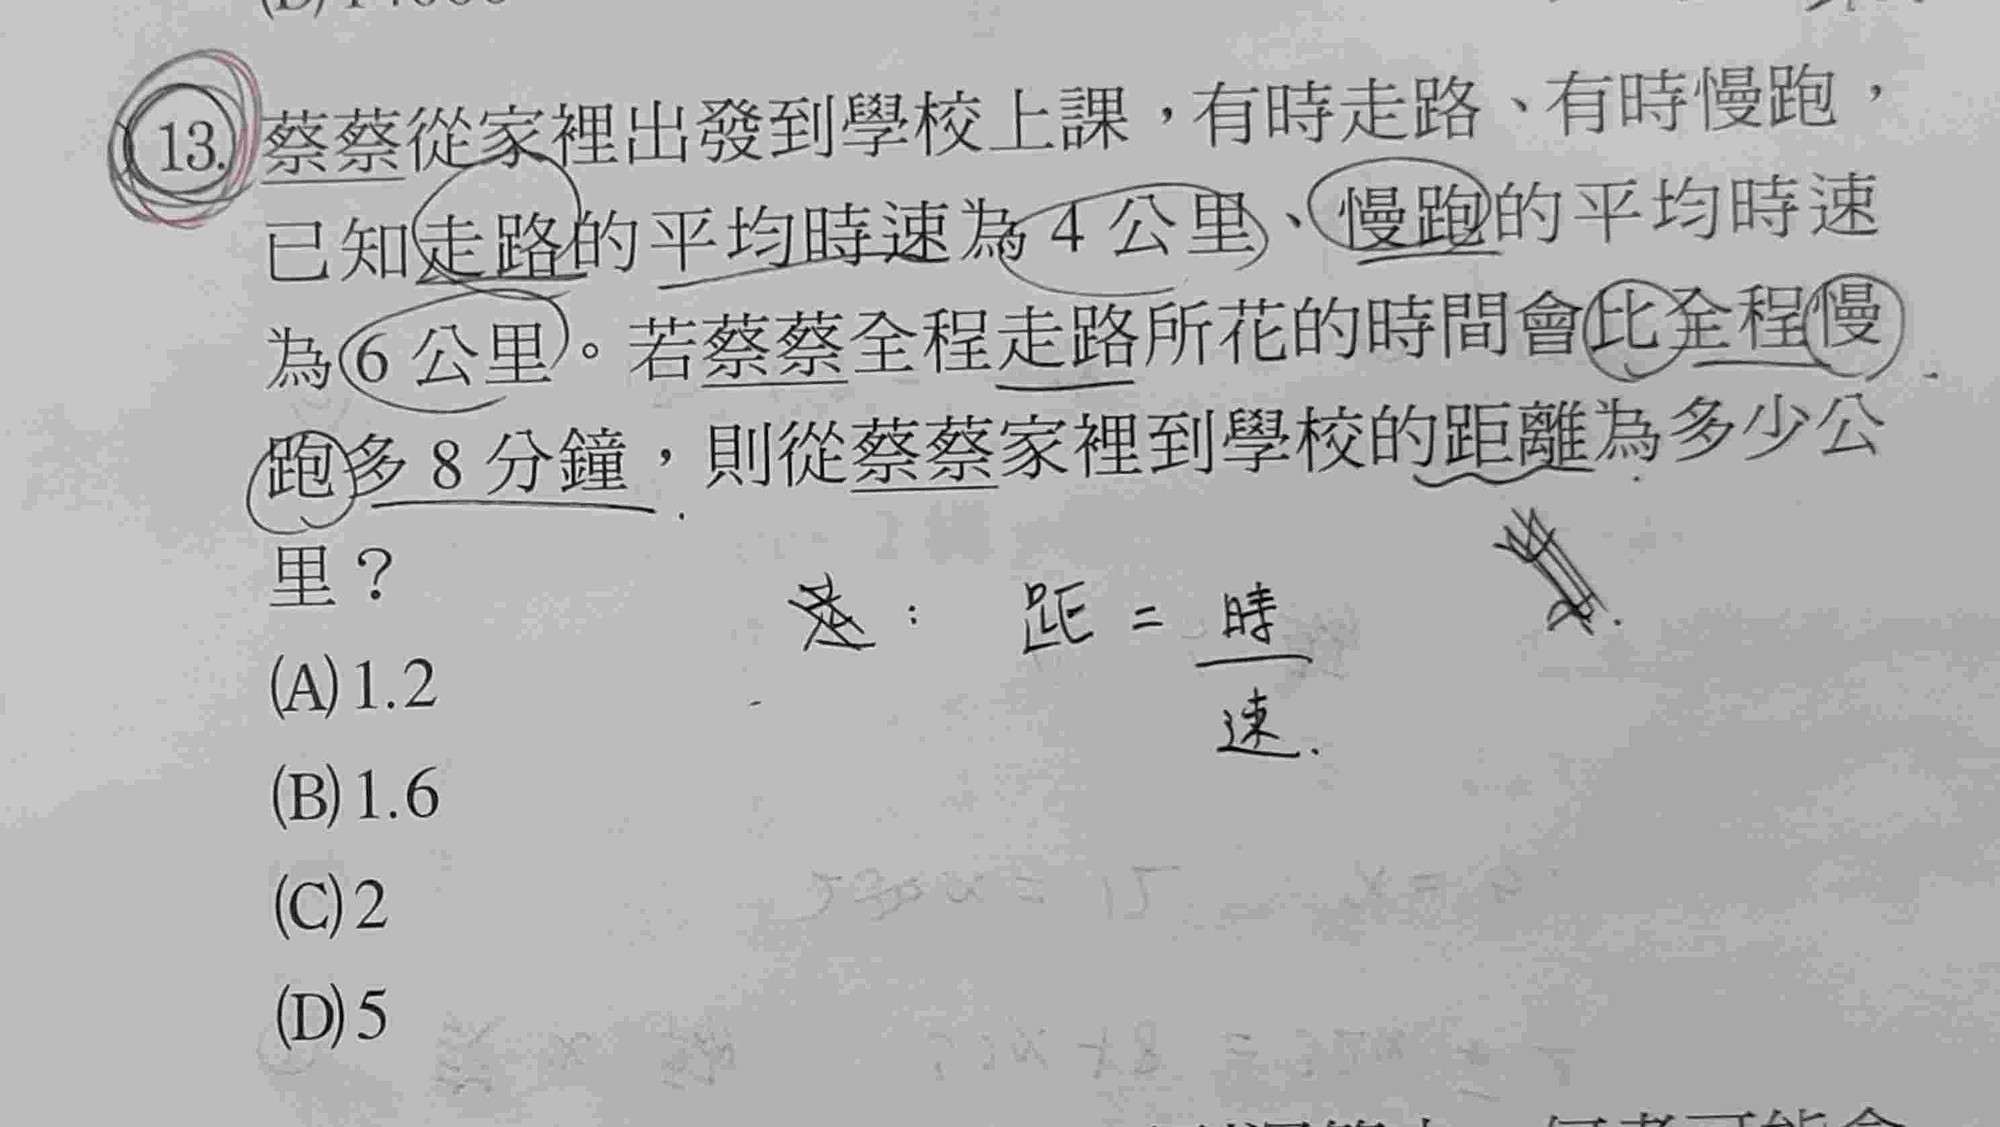 13. 蔡蔡從家裡出發到學校上課，有時走路、有時慢跑，
已知走路的平均時速為 4 公里、慢跑的平均時速
為 6 公里。若蔡蔡全程走路所花的時間會比全程慢
跑多 8 分鐘，則從蔡蔡家裡到學校的距離為多少公
里？
距 = 時
速.
(A) 1.2
(B) 1.6
(C) 2
(D) 5